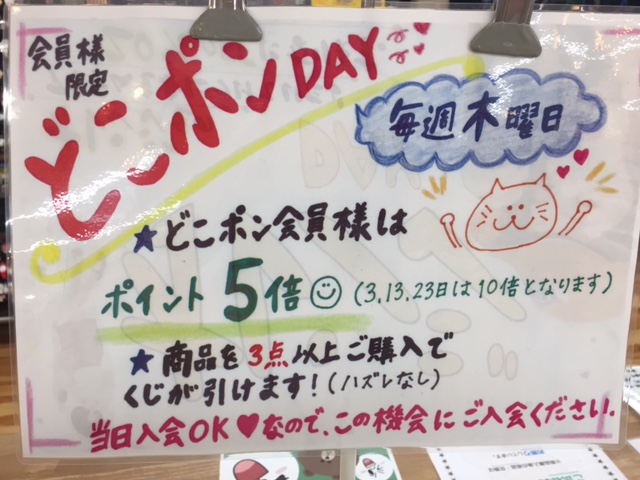 会員様
限定
どこポンDAY
毎週木曜日
★どこポン会員様は
ポイント5倍(3,13,23日は10倍となります)
★商品を3点以上ご購入で
くじが引けます!(ハズレなし)
当日入会OK♥なので、この機会にご入会ください。